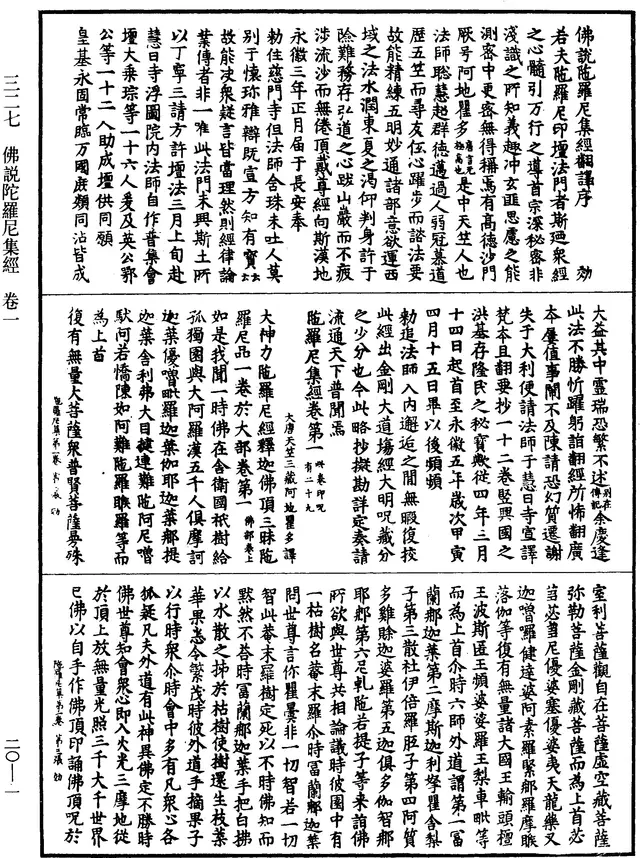 三二七 佛説陀羅尼集經 卷一
二〇—一
佛說陁羅尼集經翻譯序 劾
若夫陁羅尼印壇法門者斯迺衆經
之心髓引万行之導首宗深秘密非
淺識之所知義趣冲玄匪思慮之能
測密中更密無得稱焉有髙德沙門
厥号阿地瞿多唐言无極髙也是中天竺人也
法師聡慧超群德邁過人弱冠慕道
歷五竺而尋友伍心躍步而諮法要
故能精練五明妙通諸部意欲運西
域之法水潤東夏之渴仰判身許于
險難務存弘道之心跋山巖而不疲
涉流沙而無倦頂戴尊經向斯漢地
永徽三年正月届于長安奉
勑住慈門寺但法師含珠未吐人莫
別于懷珎雅辯既宣方知有寶
故能决衆疑言皆當理然則經律論
業傳者非一唯此法門未興斯土所
以丁寧三請方許壇法三月上旬赴
慧日寺浮圖院内法師自作普集會
壇大乘琮等一十六人爰及英公鄂
公等一十二人助成壇供同願
皇基永固常臨万國庶類同沾皆成
大益其中靈瑞恐繁不述別在傳記余慶逢
此法不勝忻躍躬詣翻經所怖翻廣
本屢值事鬧不及陳請恐幻質遷謝
失于大利便請法師于慧日寺宣譯
梵本且翻要抄一十二卷竪興國之
洪基存隆民之秘寶歟從四年三月
十四日起首至永徽五年歲次甲寅
四月十五日畢以後頻頻
勑追法師入内邂逅之間無暇復校
此經出金剛大道塲經大明呪藏分
之少分也今此略抄擬勘詳定奏請
流通天下普聞焉
陁羅尼集經卷第一 此卷印呪有二十九
大唐天竺三藏阿地瞿多譯
大神力陁羅尼經釋迦佛頂三昧陁
羅尼品一卷於大部卷第十 佛部卷上
如是我聞一時佛在舍衛國祇樹給
孤獨園與大阿羅漢五千人俱摩訶
迦葉優嚕毗羅迦葉伽耶迦葉那提
迦葉舍利弗大目揵連難陁阿尼嚕
馱阿若憍陳如阿難陁羅睺羅等而
為上首
復有無量大菩薩衆普賢菩薩㬅殊
室利菩薩觀自在菩薩虛空藏菩薩
弥勒菩薩金剛藏菩薩而為上首苾
芻苾芻尼優婆塞優婆夷天龍藥叉
迦嚕羅健達婆阿素羅緊那羅摩睺
落伽等復有無量諸大國王輸頭檀
王波斯匿王頻婆娑羅王梨車毗等
而為上首介時六師外道謂第一冨
蘭那迦葉第二摩斯迦利拏瞿舍梨
子第三散社伊倍羅胝子第四阿質
多雞賒迦婆羅第五迦俱多伽智那
耶那第六尼乾陁若提子等来詣佛
所欲與世尊共相論議時彼園中有
一枯樹名菴末羅介時冨蘭那迦葉
問世尊言你瞿曇非一切智若一切
智此菴末羅樹定死以不時佛知而
黙然不荅時冨蘭那迦葉手把白拂
以水散之拂於枯樹使樹還生枝葉
華果悉令繁茂時彼外道手摘果子
以行時衆介時會中多有凡衆心各
狐疑凡夫外道有此神異佛定不勝時
佛世尊知會衆心即入火光三摩地從
於頂上放無量光照三千大千世界
已佛以自手作佛頂印誦佛頂呪於